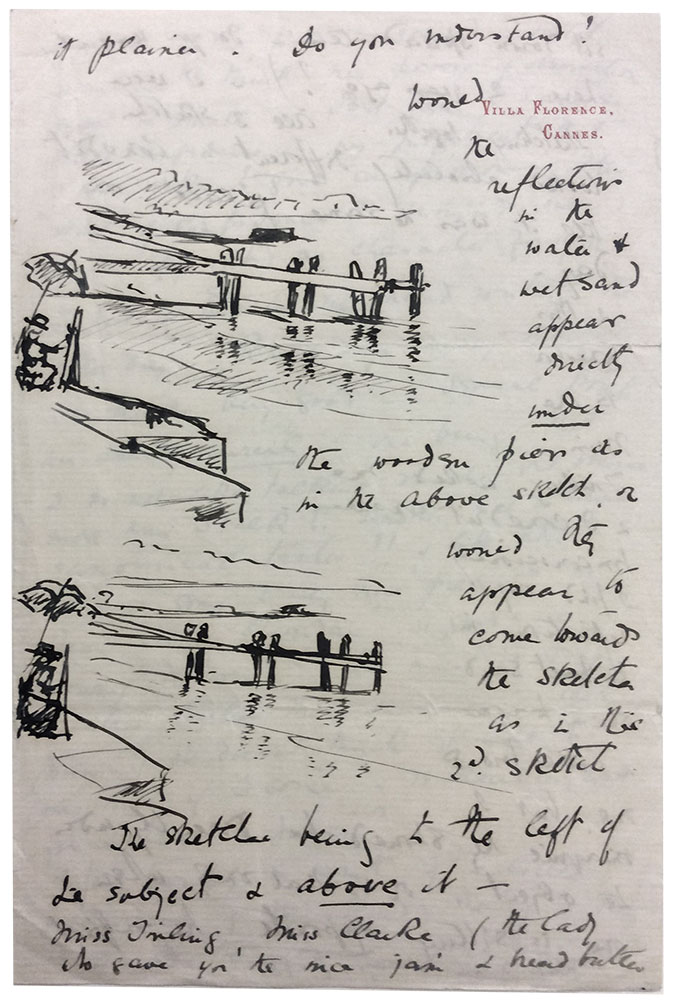 it plainer. Do you understand?
VILLA FLORENCE,
CANNES.
would
the
reflections
in the
water &
wet sand
appear
directly
under
the wooden piers as
in the above sketch, or
would they
appear to
come towards
the sketcher
as in this
2d. sketch
The sketcher being to the left of
the subject & above it —
Miss Miss Clarke (the lady
who gave you the nice jam & bread butter